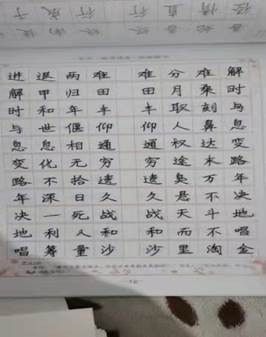 进退两难 难分难解
解甲归田 田月乘时
时和年丰 丰取刻与
与世偃仰 仰人鼻息
息息相通 通权达变
变化无穷 穷途末路
路不拾遗 遗臭万年
年深日久 久悬不决
决一死战 战天斗地
地利人和 和而不唱
唱筹量沙 沙里淘金